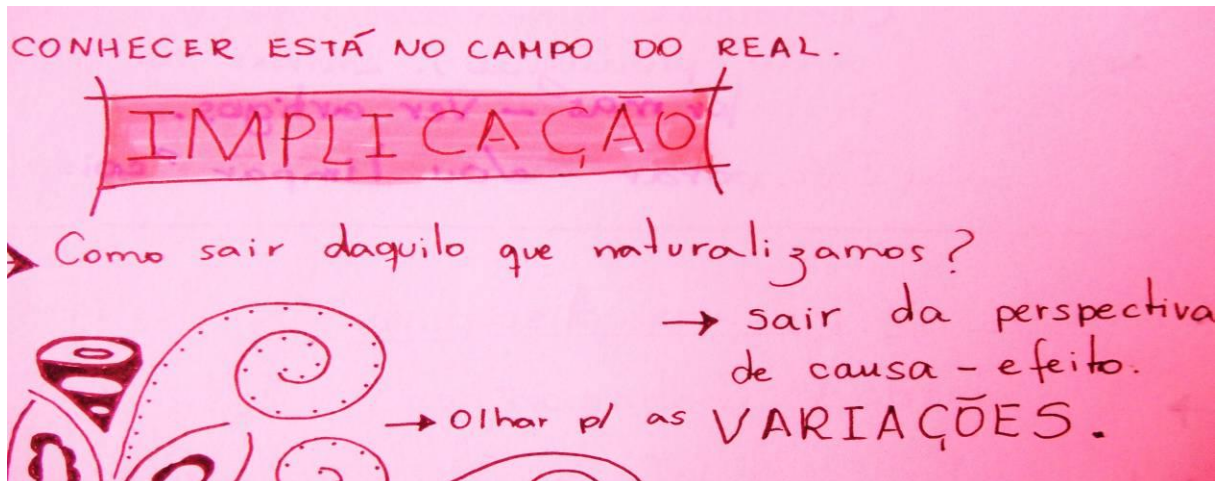 CONHECER ESTÁ NO CAMPO DO REAL.
IMPLICAÇÃO
Como sair daquilo que naturalizamos?
→ sair da perspectiva
de causa - efeito.
→ Olhar p/ as VARIAÇÕES.